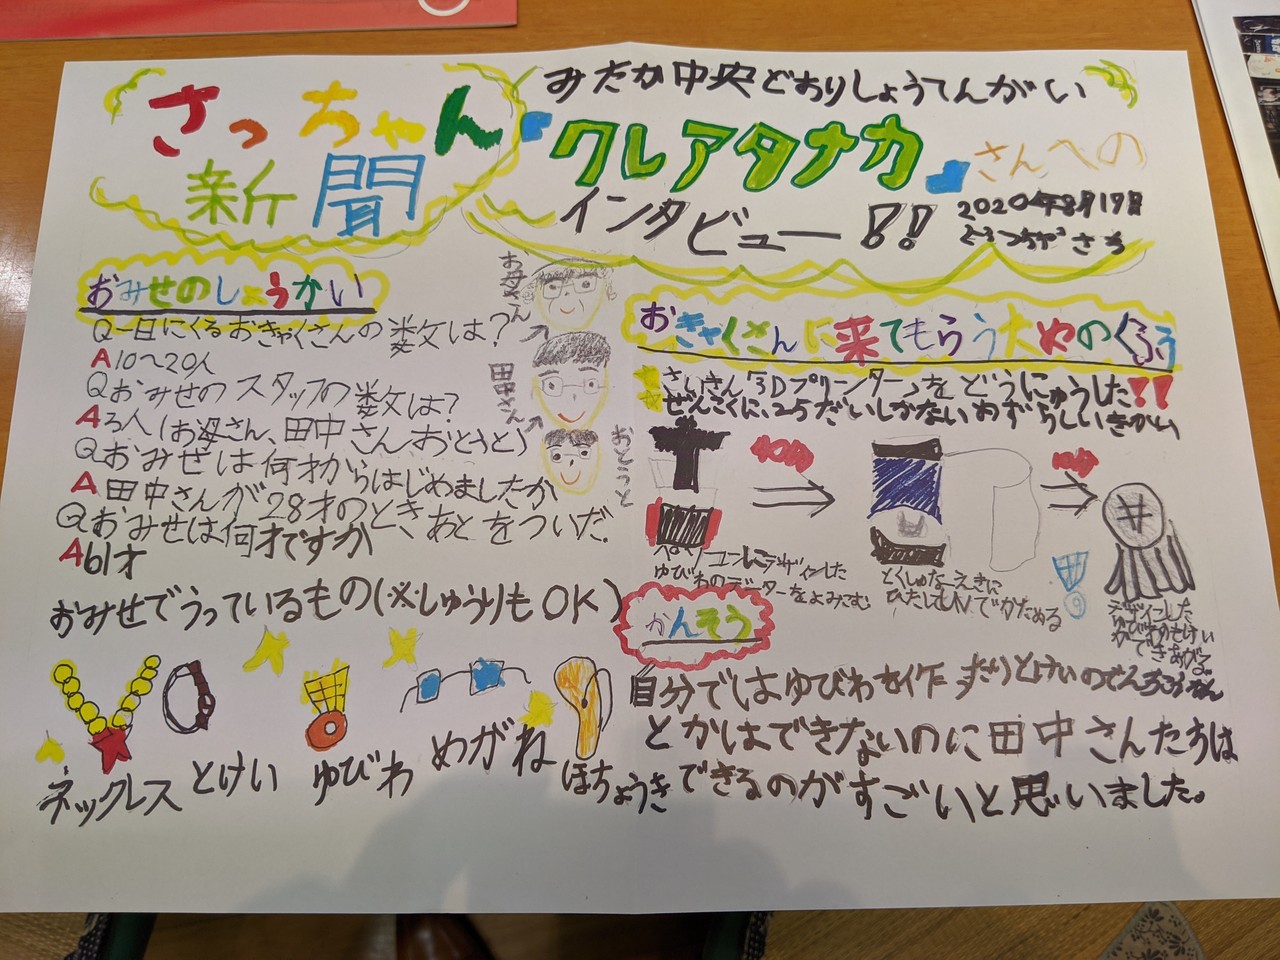 さっちゃん
新聞
みたか中央どおりしょうてんがい
クレアタナカさんへの
インタビュー!!
2020年8月17日
おみせのしょうかい
Q一日にくるおきゃくさんの数は?
A10〜20人
Qおみせのスタッフの数は?
A3人(お母さん、田中さんおとうと)
Qおみせは何才からはじめましたか
A田中さんが28才のときあとをついだ.
Qおみせは何才ですか
A61才
お母さん
田中さん
おとうと
おみせでうっているもの(※しゅうりもOK)
ネックレス
とけい
ゆびわ
めがね
ほちょうき
おきゃくさんに来てもらうためのくふう
さいきん「3Dプリンター」をどうにゅうした!!
ぜんこくに、25だいしかないめずらしいきかい
40分
10分
パソコンにデザインした
ゆびわのデーターをよみこむ
とくしゅなえきに
ひたしてUVでかためる
デザインした
ゆびわのもけい
ができあがる
かんそう
自分ではゆびわを作ったりとけいの
とかはできないのに田中さんたちは
できるのがすごいと思いました。